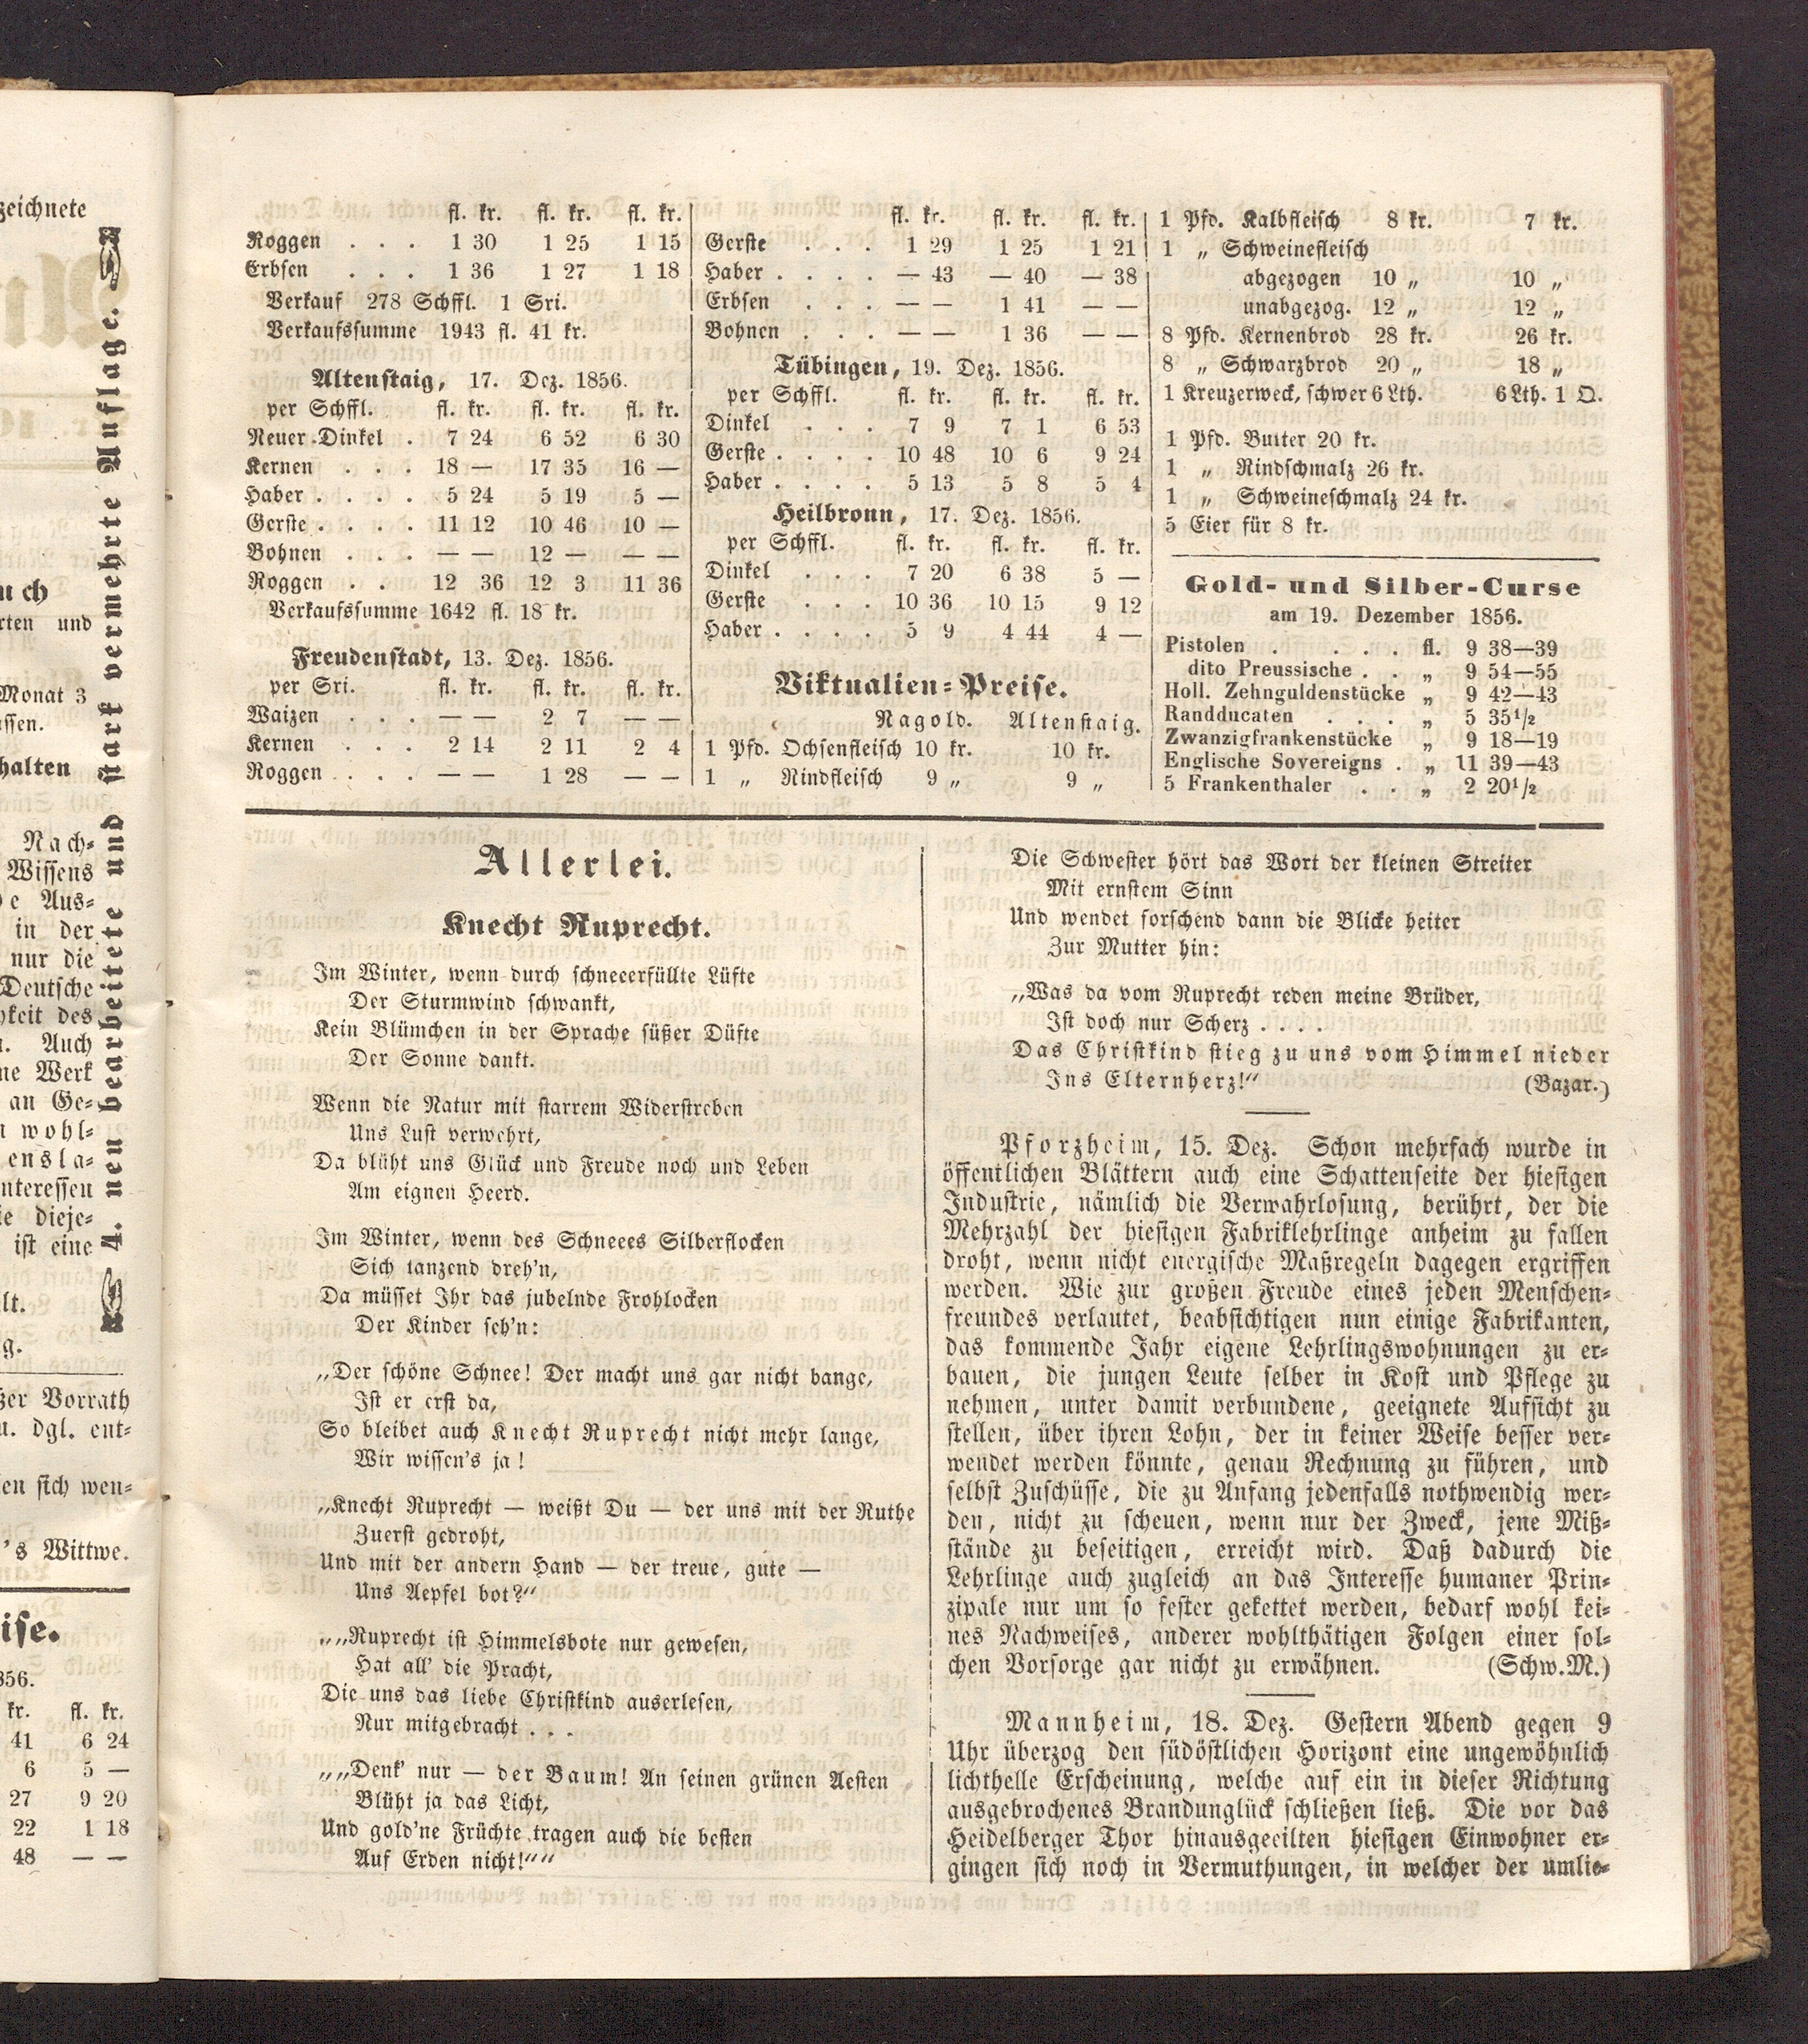 zeichnete
uch
rten und
Monat 3
ssen.
halten
Nach⸗
Wissens
Aus⸗
in der
nur die
Deutsche
keit des
Auch
ne Werk
an Ge⸗
wohl⸗
ensla⸗
nteressen
ie dieje⸗
ist eine
lt.
g.
ßer Vorrath
u. dgl. ent⸗
en sich wen⸗
's Wittwe.
ise.
856.
kr. fl. kr.
41 6 24
6 5 —
27 9 20
22 1 18
48 — —
4. neu bearbeitete und stark vermehrte Auflage.
fl. kr. fl. kr. fl. kr.
Roggen . . . 1 30 1 25 1 15
Erbsen . . . 1 36 1 27 1 18
Verkauf 278 Schffl. 1 Sri.
Verkaufssumme 1943 fl. 41 kr.
Altenstaig, 17. Dez. 1856.
per Schffl. fl. kr. fl. kr. fl. kr.
Neuer Dinkel . 7 24 6 52 6 30
Kernen . . . 18 — 17 35 16 —
Haber . . . . 5 24 5 19 5 —
Gerste . . . . 11 12 10 46 10 —
Bohnen . . . — — 12 — — —
Roggen . . 12 36 12 3 11 36
Verkaufssumme 1642 fl. 18 kr.
Freudenstadt, 13. Dez. 1856.
per Sri. fl. kr. fl. kr. fl. kr.
Waizen . . . — — 2 7 — —
Kernen . . . 2 14 2 11 2 4
Roggen . . . — — 1 28 — —
fl. kr. fl. kr. fl. kr.
Gerste . . . 1 29 1 25 1 21
Haber . . . . — 43 — 40 — 38
Erbsen . . . — — 1 41 — —
Bohnen . . . — — 1 36 — —
Tübingen, 19. Dez. 1856.
per Schffl. fl. kr. fl. kr. fl. kr.
Dinkel . . . 7 9 7 1 6 53
Gerste . . . . 10 48 10 6 9 24
Haber . . . . 5 13 5 8 5 4
Heilbronn, 17. Dez. 1856.
per Schffl. fl. kr. fl. kr. fl. kr.
Dinkel . . . 7 20 6 38 5 —
Gerste . . . 10 36 10 15 9 12
Haber . . . . 5 9 4 44 4 —
Viktualien⸗Preise.
Nagold. Altenstaig.
1 Pfd. Ochsenfleisch 10 kr. 10 kr.
1 „ Rindfleisch 9 „ 9 „
1 Pfd. Kalbfleisch 8 kr. 7 kr.
1 „ Schweinefleisch
abgezogen 10 „ 10 „
unabgezog. 12 „ 12 „
8 Pfd. Kernenbrod 28 kr. 26 kr.
8 „ Schwarzbrod 20 „ 18 „
1 Kreuzerweck, schwer 6 Lth. 6 Lth. 1 Q.
1 Pfd. Butter 20 kr.
1 „ Rindschmalz 26 kr.
1 „ Schweineschmalz 24 kr.
5 Eier für 8 kr.
Gold- und Silber-Curse
am 19. Dezember 1856.
Pistolen . . . . fl. 9 38—39
dito Preussische . . „ 9 54—55
Holl. Zehnguldenstücke „ 9 42—43
Randducaten . . . „ 5 35½
Zwanzigfrankenstücke „ 9 18—19
Englische Sovereigns . „ 11 39—43
5 Frankenthaler . . „ 2 20½
Allerlei.
Knecht Ruprecht.
Im Winter, wenn durch schneeerfüllte Lüfte
Der Sturmwind schwankt,
Kein Blümchen in der Sprache süßer Düfte
Der Sonne dankt.
Wenn die Natur mit starrem Widerstreben
Uns Lust verwehrt,
Da blüht uns Glück und Freude noch und Leben
Am eignen Heerd.
Im Winter, wenn des Schneees Silberflocken
Sich tanzend dreh'n,
Da müsset Ihr das jubelnde Frohlocken
Der Kinder seh'n:
„Der schöne Schnee! Der macht uns gar nicht bange,
Ist er erst da,
So bleibet auch Knecht Ruprecht nicht mehr lange,
Wir wissen's ja!
„Knecht Ruprecht — weißt Du — der uns mit der Ruthe
Zuerst gedroht,
Und mit der andern Hand — der treue, gute —
Uns Aepfel bot?“
„„Ruprecht ist Himmelsbote nur gewesen,
Hat all' die Pracht,
Die uns das liebe Christkind auserlesen,
Nur mitgebracht . . .
„„Denk' nur — der Baum! An seinen grünen Aesten
Blüht ja das Licht,
Und gold'ne Früchte tragen auch die besten
Auf Erden nicht!““
Die Schwester hört das Wort der kleinen Streiter
Mit ernstem Sinn
Und wendet forschend dann die Blicke heiter
Zur Mutter hin:
„Was da vom Ruprecht reden meine Brüder,
Ist doch nur Scherz . . . .
Das Christkind stieg zu uns vom Himmel nieder
Ins Elternherz!“ (Bazar.)
Pforzheim, 15. Dez. Schon mehrfach wurde in
öffentlichen Blättern auch eine Schattenseite der hiesigen
Industrie, nämlich die Verwahrlosung, berührt, der die
Mehrzahl der hiesigen Fabriklehrlinge anheim zu fallen
droht, wenn nicht energische Maßregeln dagegen ergriffen
werden. Wie zur großen Freude eines jeden Menschen⸗
freundes verlautet, beabsichtigen nun einige Fabrikanten,
das kommende Jahr eigene Lehrlingswohnungen zu er⸗
bauen, die jungen Leute selber in Kost und Pflege zu
nehmen, unter damit verbundene, geeignete Aufsicht zu
stellen, über ihren Lohn, der in keiner Weise besser ver⸗
wendet werden könnte, genau Rechnung zu führen, und
selbst Zuschüsse, die zu Anfang jedenfalls nothwendig wer⸗
den, nicht zu scheuen, wenn nur der Zweck, jene Miß⸗
stände zu beseitigen, erreicht wird. Daß dadurch die
Lehrlinge auch zugleich an das Interesse humaner Prin⸗
zipale nur um so fester gekettet werden, bedarf wohl kei⸗
nes Nachweises, anderer wohlthätigen Folgen einer sol⸗
chen Vorsorge gar nicht zu erwähnen. (Schw.M.)
Mannheim, 18. Dez. Gestern Abend gegen 9
Uhr überzog den südöstlichen Horizont eine ungewöhnlich
lichthelle Erscheinung, welche auf ein in dieser Richtung
ausgebrochenes Brandunglück schließen ließ. Die vor das
Heidelberger Thor hinausgeeilten hiesigen Einwohner er⸗
gingen sich noch in Vermuthungen, in welcher der umlie⸗